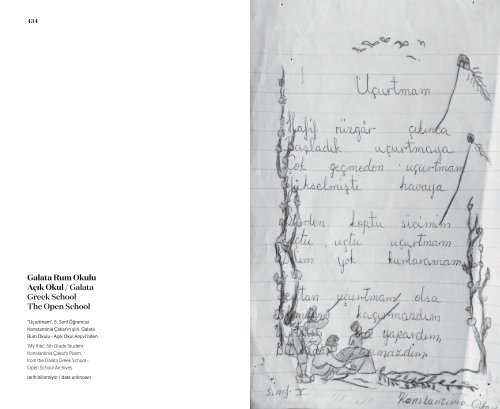 434
Galata Rum Okulu
Açık Okul / Galata
Greek School
The Open School
"Uçurtmam", 5. Sınıf Öğrencisi
Konstantinia Çakar'ın şiiri, Galata
Rum Okulu - Açık Okul Arşivi'nden
'My Kite', 5th Grade Student
Konstantinia Çakar's Poem,
from the Galata Greek School -
Open School Archives
tarih bilinmiyor / date unknown
Uçurtmam
Hafif rüzgâr çıkınca
Başladık uçurtmaya
Çok geçmeden uçurtmam
Yükselmişti havaya
koptu sicimim
uçtu uçurtmam
yok kurtaramam
uçurtmam olsa
kaçırmazdım
yapardım,
Sınıf: V
Konstantinia